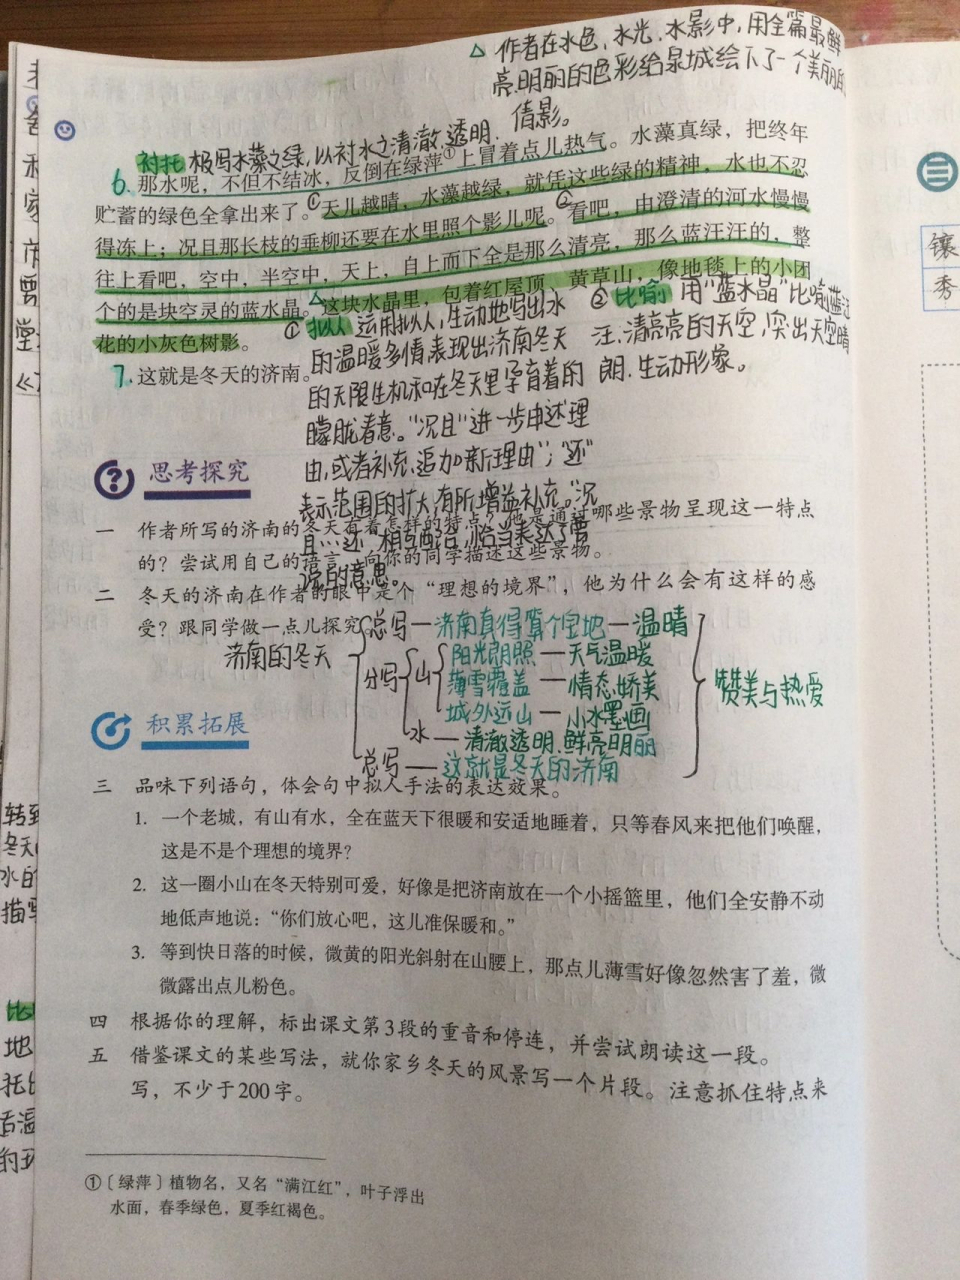 △作者在水色、水光、水影中,用全篇最鲜
亮、明丽的色彩给泉城绘下了一个美丽的
倩影。
衬托 极写水藻之绿,以衬水之清澈、透明.
6. 那水呢，不但不结冰，反倒在绿萍①上冒着点儿热气。水藻真绿，把终年
贮蓄的绿色全拿出来了。①天儿越晴，水藻越绿，就凭这些绿的精神，水也不忍
得冻上；况且那长枝的垂柳还要在水里照个影儿呢。②看吧，由澄清的河水慢慢
往上看吧，空中，半空中，天上，自上而下全是那么清亮，那么蓝汪汪的，整
个的是块空灵的蓝水晶。△这块水晶里，包着红屋顶、黄草山，像地毯上的小团
花的小灰色树影。
① 拟人 运用拟人,生动地写出水
的温暖多情,表现出济南冬天
的无限生机和在冬天里孕育着的
朦胧春意。“况且”进一步申述理
由,或者补充、追加新理由”;“还”
表示范围的扩大,有所增益补充。“况
且……还”相互配合,恰当表达了
的意思。
② 比喻 用“蓝水晶”比喻蓝汪
汪、清亮亮的天空,突出天空晴
朗.生动形象。
7. 这就是冬天的济南。
思考探究
一 作者所写的济南的冬天有着怎样的特点？他是通过哪些景物呈现这一特点
的？尝试用自己的语言，向你的同学描述这些景物。
二 冬天的济南在作者的眼中是个“理想的境界”，他为什么会有这样的感
受？跟同学做一点儿探究。
济南的冬天
总写—济南真得算个宝地—温晴
分写 山 阳光朗照—天气温暖
薄雪覆盖—情态娇美
城外远山—小水墨画
水—清澈透明、鲜亮明丽
总写—这就是冬天的济南
赞美与热爱
积累拓展
三 品味下列语句，体会句中拟人手法的表达效果。
1. 一个老城，有山有水，全在蓝天下很暖和安适地睡着，只等春风来把他们唤醒，
这是不是个理想的境界？
2. 这一圈小山在冬天特别可爱，好像是把济南放在一个小摇篮里，他们全安静不动
地低声地说：“你们放心吧，这儿准保暖和。”
3. 等到快日落的时候，微黄的阳光斜射在山腰上，那点儿薄雪好像忽然害了羞，微
微露出点儿粉色。
四 根据你的理解，标出课文第3段的重音和停连，并尝试朗读这一段。
五 借鉴课文的某些写法，就你家乡冬天的风景写一个片段。注意抓住特点来
写，不少于200字。
①〔绿萍〕植物名，又名“满江红”，叶子浮出
水面，春季绿色，夏季红褐色。
三
镶
秀
舍
和
家
堂
转到
冬天
水的
描写
比
地
托比
的环